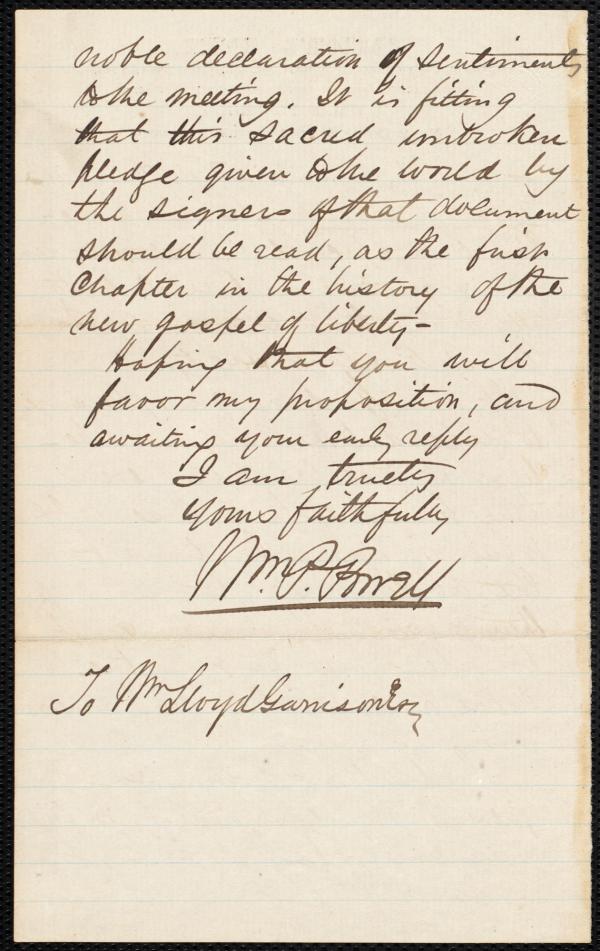 noble declaration of sentiments
to the meeting. It is fitting
that this sacred unbroken
pledge given to the world by
the signers of that document
should be read, as the first
chapter in the history of the
new gospel of liberty-
Hoping that you will
favor my proposition, and
awaiting your early reply
I am truely
yours faithfully
Wm. P. Powell
To Wm Lloyd Garrison Esq